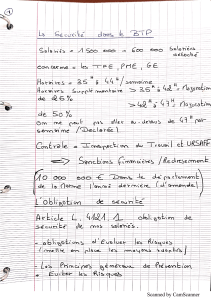 1
La Sécurité dans le BTP
Salariés = 1 500 000 - 600 000 salariés
concerne = les TPE, PME, GE
Horaires = 35H à 44H / semaine
Horaires Supplémentaire > 35H à 42H = Majoration
de 25%
> 42H à 47H Majoration
de 50%
On ne peut pas aller au dessus de 47H par
semaine / Déclarée)
Contrôle = Inspection du Travail et URSAFF
=> Sanctions financières / Redressement
10 000 000 € Dans le département
de la Marne l'année dernière (d'amende)
L'Obligation de sécurité
Article L. 4121 1 obligation de
sécurité de nos salariés.
- obligations d'Évaluer les Risques
(mettre en place les moyens adaptés)
- Les Principes généraux de Prévention
• Éviter les Risques
Scanned by CamScanner